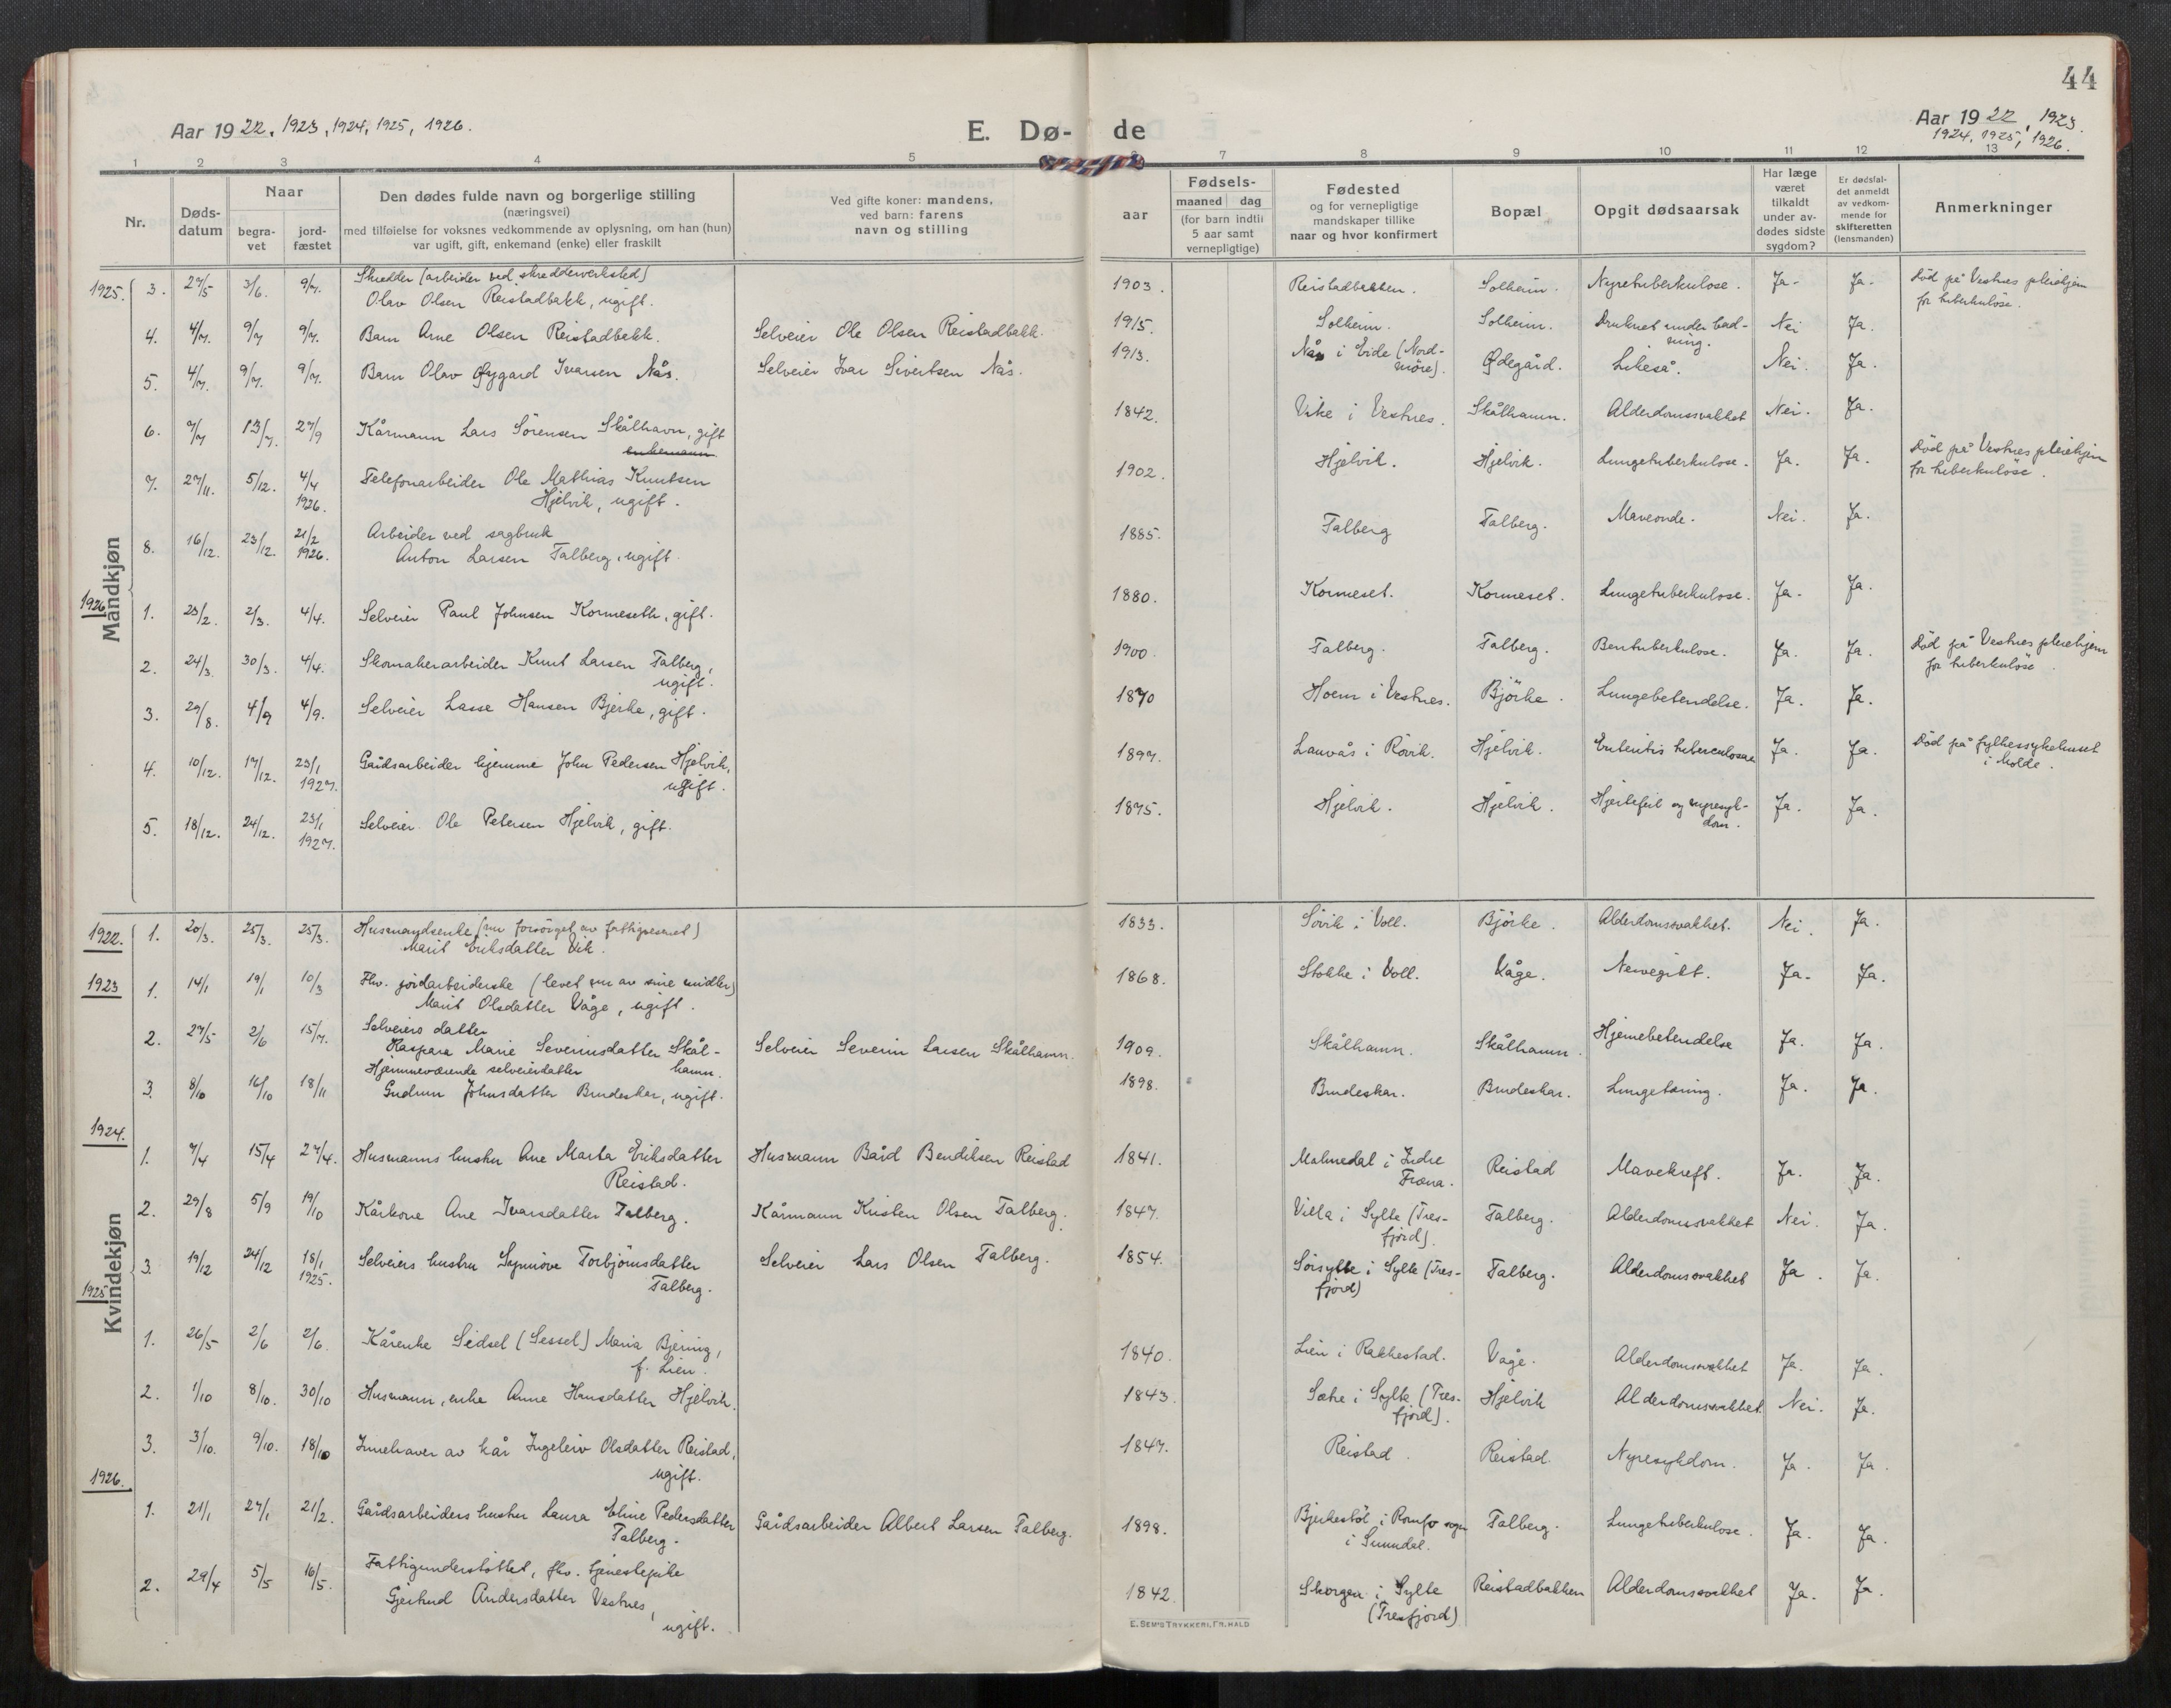 44
Aar 1922, 1923, 1924, 1925, 1926.
E. Dø- de
Aar 1922, 1923.
1924, 1925, 1926.
1 2 3 4 5 6 7 8 9 10 11 12 13
Nr.
Døds-
datum
Naar
begra-
vet
jord-
fæstet
Den dødes fulde navn og borgerlige stilling
(næringsvei)
med tilføielse for voksnes vedkommende av oplysning, om han (hun)
var ugift, gift, enkemand (enke) eller fraskilt
Ved gifte koner: mandens,
ved barn: farens
navn og stilling
aar
Fødsels-
maaned dag
(for barn indtil
5 aar samt
vernepligtige)
Fødested
og for vernepligtige
mandskaper tillike
naar og hvor konfirmert
Bopæl
Opgit dødsaarsak
Har læge
været
tilkaldt
under av-
dødes sidste
sygdom?
Er dødsfal-
det anmeldt
av vedkom-
mende for
skifteretten
(lensmanden)
Anmerkninger
Mandkjøn
1925. 3. 27/5 3/6. 9/7. Skrædder (arbeider ved skredderverksted) 1903. Reistadbakken. Solheim. Nyretuberkulose. Ja. Ja. Död på Vestnes pleiehjem
Olav Olsen Reistadbakk, ugift. for tuberkulöse.
4. 4/7. 9/7 9/7. Barn Arne Olsen Reistadbakk. Selveier Ole Olsen Reistadbakk. 1915. Solheim. Solheim. Druknet under bad- Nei Ja.
ning.
5. 4/7. 9/7. 9/7. Barn Olav Øygard Ivarsen Nås. Selveier Ivar Sivertsen Nås. 1913. Nås i Eide (Nord- Ødegård. Likeså. Nei. Ja.
möre).
6. 7/7 13/7. 27/9 Kårmann Lars Sörensen Skålhavn, gift 1842. Vike i Vestnes. Skålhamn. Alderdomssvakhet Nei. Ja.
enkemann
7. 27/11. 5/12. 4/4 Telefonarbeider Ole Mathias Knutsen 1902. Hjelvik. Hjelvik. Lungetuberkulose. Ja. Ja. Död på Vestnes pleiehjem
1926. Hjelvik, ugift. for tuberkulöse.
8. 16/12. 23/12. 21/2 Arbeider ved sagbruk 1885. Talberg Talberg. Maveonde. Nei. Ja.
1926. Anton Larsen Talberg, ugift.
1926
1. 23/2. 2/3. 4/4. Selveier Paul Johnsen Kormeseth, gift. 1880. Kormeset. Kormeset. Lungetuberkulose. Ja. Ja.
2. 24/3. 30/3. 4/4. Skomakerarbeider Knut Larsen Talberg, 1900. Talberg. Talberg. Bentuberkulose. Ja. Ja. Död på Vestnes pleiehjem
ugift. for tuberkulöse.
3. 29/8. 4/9 4/9. Selveier Lasse Hansen Bjerke, gift. 1870 Hoem i Vestnes. Björke. Lungebetendelse. Ja. Ja.
4. 10/12. 17/12. 23/1 Gårdsarbeider hjemme John Pedersen Hjelvik, 1897. Lanvås i Rövik. Hjelvik. Enteritis tuberculosa Ja. Ja. Död på fylkessykehuset
1927. ugift. i Molde.
5. 18/12. 24/12. 23/1 Selveier Ole Petersen Hjelvik, gift. 1875. Hjelvik. Hjelvik. Hjertefeil og nyresyk- Ja. Ja.
1927. dom.
Kvindekjøn
1922. 1. 20/3. 25/3. 25/3. Husmandsenke (nu forsörget av fattigvesenet) 1833. Sövik i Voll. Björke. Alderdomssvakhet. Nei. Ja.
Marit Eriksdatter Vik.
1923 1. 14/1 19/1 10/3 Fhv. jordarbeiderske (levet nu av sine midler) 1868. Stokke i Voll. Våge. Nervegikt. Ja. Ja.
Marit Olsdatter Våge, ugift.
2. 27/5 2/6 15/7. Selveiers datter
Kaspara Marie Severinsdatter Skål- Selveier Severin Larsen Skålhamn. 1909. Skålhamn. Skålhamn. Hjernebetendelse Ja. Ja.
hamn.
3. 8/10 16/10 18/11 Hjemmeværende selveierdatter 1898. Brudeskar. Brudeskar. Lungetæring. Ja. Ja.
Gudrun Johnsdatter Brudeskar, ugift.
1924.
1. 7/4 15/4 27/4. Husmanns hustru Ane Marta Eriksdatter Husmann Bård Bendiksen Reistad 1841. Malmedal i Indre Reistad Mavekreft. Ja. Ja.
Reistad. Fræna.
2. 29/8 5/9 19/10 Kårkone Ane Ivarsdatter Talberg. Kårmann Kristen Olsen Talberg. 1847. Villa i Sylte (Tres- Talberg. Alderdomssvakhet Nei. Ja.
fjord).
3. 19/12 24/12 18/1 Selveiers hustru Synnöve Torbjörnsdatter Selveier Lars Olsen Talberg. 1854. Sörsylte i Sylte (Tres- Talberg. Alderdomssvakhet Ja. Ja.
1925. Talberg. fjord)
1925
1. 26/5 2/6 2/6. Kårenke Sidsel (Sessel) Maria Bjering, 1840. Lien i Rakkestad. Våge. Alderdomssvakhet Ja. Ja.
f. Lien.
2. 1/10 8/10. 30/10 Husmann, enke Anne Hansdatter Hjelvik. 1843. Sætre i Sylte (Tres- Hjelvik Alderdomssvakhet. Nei. Ja.
fjord).
3. 3/10. 9/10. 18/10 Innehaver av kår Ingeleiv Olsdatter Reistad, 1847. Reistad. Reistad. Nyresykdom. Ja. Ja.
ugift.
1926.
1. 21/1 27/1 21/2. Gårdsarbeiders hustru Laura Eline Pedersdatter Gårdsarbeider Albert Larsen Talberg. 1898. Bjerkestöl i Romfo sogn Talberg. Lungetuberkulose. Ja. Ja.
Talberg. i Sunndal.
2. 29/4 5/5 16/5. Fattigunderstöttet, fhv. tjenestepike 1842. Skorgen i Sylte Reistadbakken Alderdomssvakhet Ja. Ja.
Gjertrud Andersdatter Vestnes, (Tresfjord)
ugift.
E. SEM'S TRYKKERI, FR.HALD